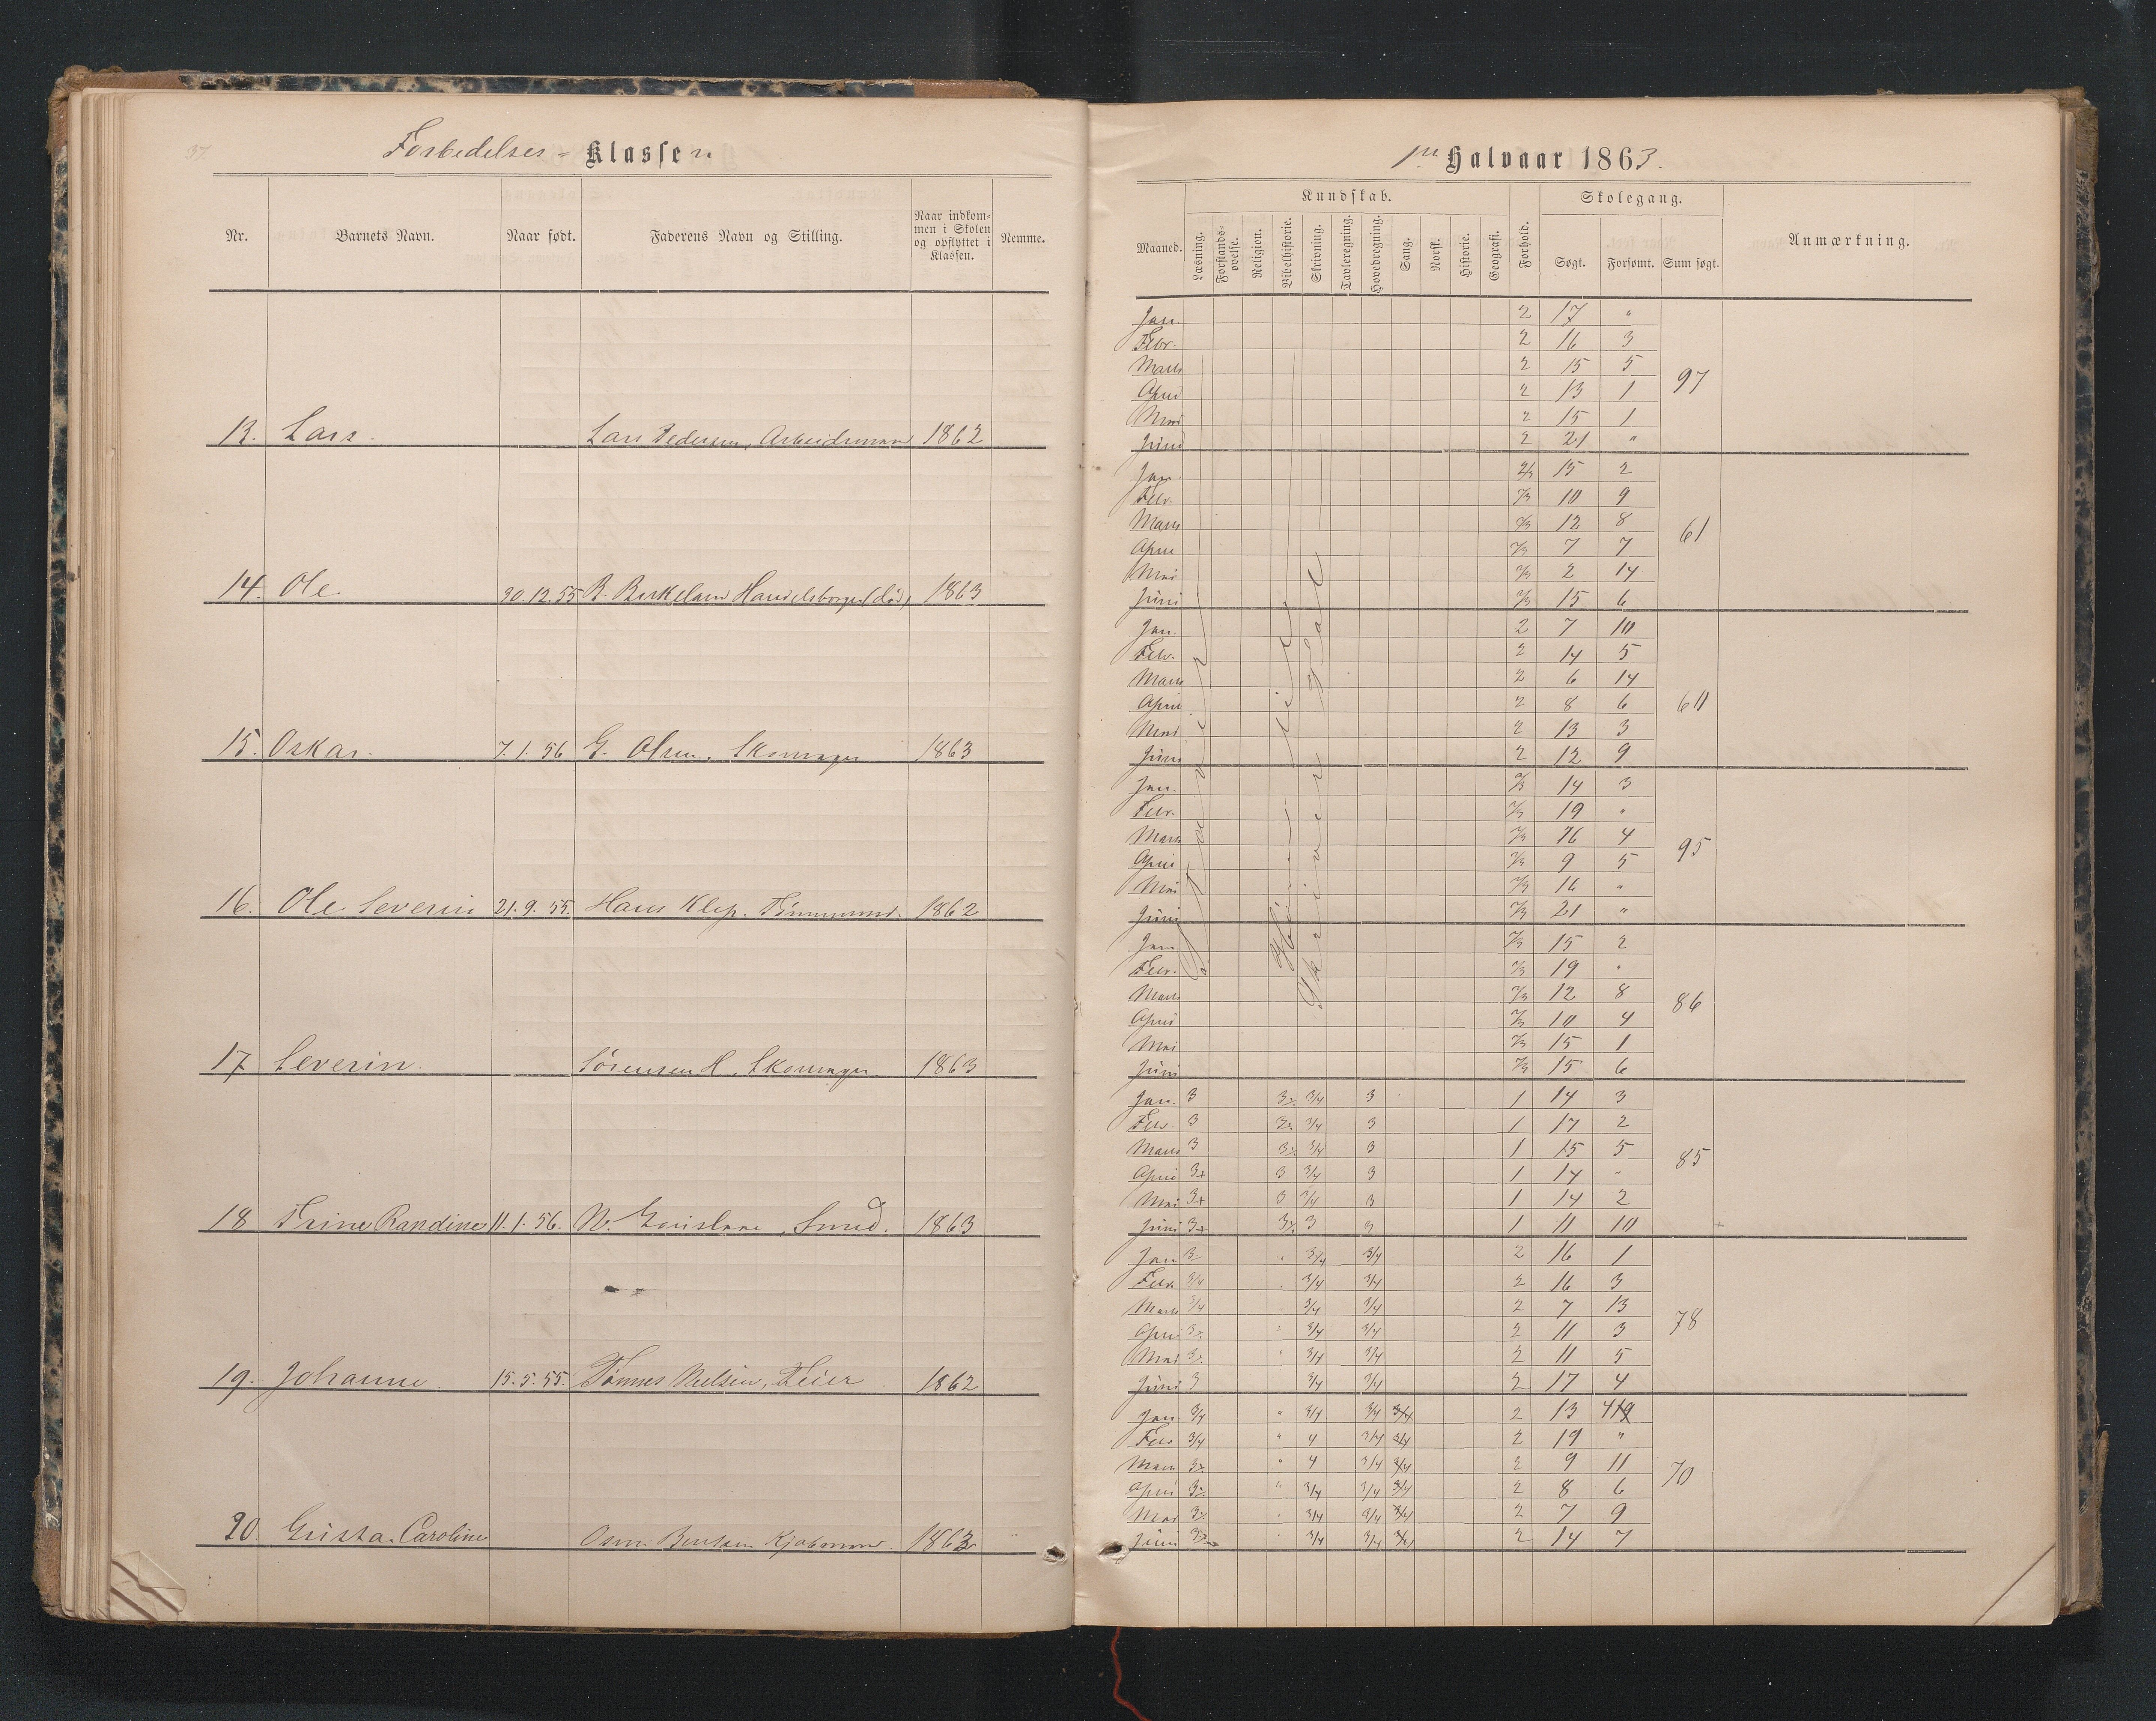 37.
Forbedelses- Klassen
Nr. Barnets Navn. Naar født. Faderens Navn og Stilling. Naar indkommen i Skolen og opflyttet i Klassen. Nemme.
13. Lars. Lars Pedersen, Arbeidsmand 1862
14. Ole. 30.12.55 B. Birkeland Handelsborger (død) 1863
15. Oskar. 7.1.56 G. Olsen, Skomager 1863
16. Ole Severin 21.9.55. Hans Klep. Tømmermd. 1862
17 Severin. Sørensen H, Skomager 1863
18 Trine Randine 11.1.56. N. , Smed. 1863
19. Johanne. 15.5.55. Tønnes Nielsen, Feier 1862
20. Gusta. Caroline Bentsen 1863
1ste Halvaar 1863.
Kundskab. Skolegang.
Maaned. Læsning. Forstandsøvelse. Religion. Bibelhistorie. Skrivning. Tavleregning. Hovedregning. Sang. Norsk. Historie. Geografi. Forhold. Søgt. Forsømt. Sum søgt. Anmærkning.
Jan. 2 17 "
Febr. 2 16 3
Marts 2 15 5
April 2 13 1 97
Mai 2 15 1
Juni 2 21 "
Jan. 2/3 15 2
Febr. 2/3 10 9
Marts 2/3 12 8
April 2/3 7 7 61
Mai 2/3 2 14
Juni 2/3 15 6
Jan. 2 7 10
Febr. 2 14 5
Marts 2 6 14
April 2 8 6 60
Mai 2 13 3
Juni 2 12 9
Jan. 2/3 14 3
Febr. 2/3 19 "
Marts 2/3 16 4
April 2/3 9 5 95
Mai 2/3 16 "
Juni 2/3 21 "
Jan. 2/3 15 2
Febr. 2/3 19 "
Marts 2/3 12 8
April 2/3 10 4 86
Mai 2/3 15 1
Juni 2/3 15 6
Jan. 3 3/4 3 1 14 3
Febr. 3 3/4 3 1 17 2
Marts 3 3/4 3 1 15 5
April 3+ 3 3/4 3 1 14 " 85
Mai 3+ 3 3/4 3 1 14 2
Juni 3+ 3 3 1 11 10
Jan. 3 3/4 3/4 2 16 1
Febr. 3/4 3/4 3/4 2 16 3
Marts 3/4 3/4 3/4 2 7 13
April 3/4 3/4 2 11 3 78
Mai 3/4 3/4 2 11 5
Juni 3 3/4 3/4 2 17 4
Jan. 3/4 " 3/4 3/4 3/4 2 13 4
Febr. 3/4 " 4 3/4 3/4 2 19 "
Marts " 4 3/4 3/4 2 9 11
April " 3/4 3/4 3/4 2 8 6 70
Mai " 3/4 3/4 3/4 2 7 9
Juni 3/4 3/4 3/4 2 14 7